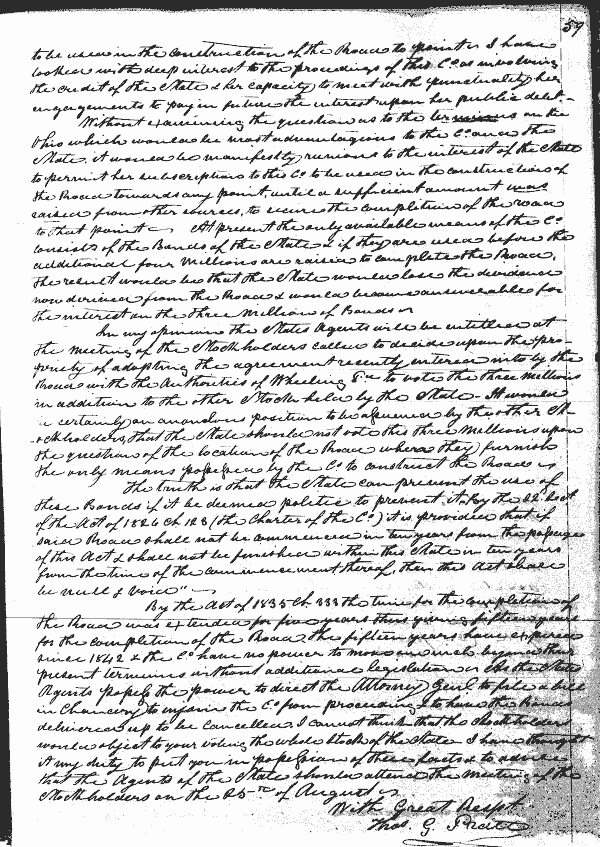 59
to be used in the construction of the Road to point is I have
looked with deep interest to the procedings of this Co. as involving
the credit of the State & her capacity to meet with punctuality her
engagements to pay in future the interest upon her public debt -
Without examining the question as to the terminus on the
Ohio which would be most advantagious to the Co. and the
State, it would be manifestly ruinous to the interest of the State
to permit her subscriptions to this Co. to be used in the construction of
the Road towards any point, until a sufficient amount was
raised from other sources, to secure the completion of the road
to that point - At present the only available means of the Co.
consists of the Bonds of the State & if they are used before the
additional four Millions are raised to complete the Road,
the result would be that the State would lose the dividend
now derived from the Road & would become answerable for
the interest on the three Million of Bonds
In my opinion the States Agents will be entitled at
the meeting of the Stockholders called to decide upon the pro-
priety of adopting the agreement recently entered into by the
Road with the Authorities of Wheeling &c to vote the three Millions
in addition to the other Stock held by the State - It would
be certainly an anomolous position to be assumed by the other St-
ockholders, that the State should not vote this three Millions upon
the question of the location of the Road where they furnish
the only means possessed by the Co. to construct the Road
The truth is that the State can prevent the use of
these Bonds if it be deemed politic to prevent it. By the 22d Sect
of the Act of 1826 Ch 123 (the Charter of the Co.) it is provided that if
said Road shall not be commenced in two years from the passage
of this Act & shall not be finished within this State in ten years
from the time of the commencement thereof, then this Act shall
be null & void" -
By the Act of 1835 Ch 333 the time for the completion of
the Road was extended for five years thus giving fifteen years
for the completion of the Road. The fifteen years have expired
since 1842 & the Co. have no power to move an inch beyond their
present terminus without additional legislation As the State
Agents possess the power to direct the Attorney Genl. to file a bill
in Chancery to enjoin the Co. from proceeding & to have the Bonds
delivered up to be cancelled I cannot think that the Stockholders
would object to your voting the whole stock of the State I have thought
it my duty to put you in possession of these facts & to advise
that the Agents of the State should attend the meeting of the
Stockholders on the 25th of August
With Great Respt.
Thos. G. Pratt